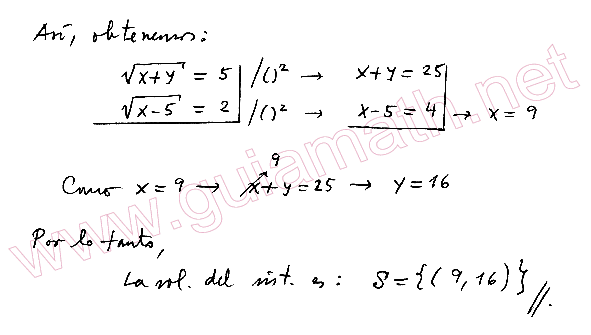 Así, obtenemos:
√(x+y) = 5 /( )² → x+y = 25
√(x-5) = 2 /( )² → x-5 = 4 → x = 9
9
Como x = 9 → x+y = 25 → y = 16
Por lo tanto,
La sol. del sist. es: S = {(9,16)}//.
www.guiamath.net